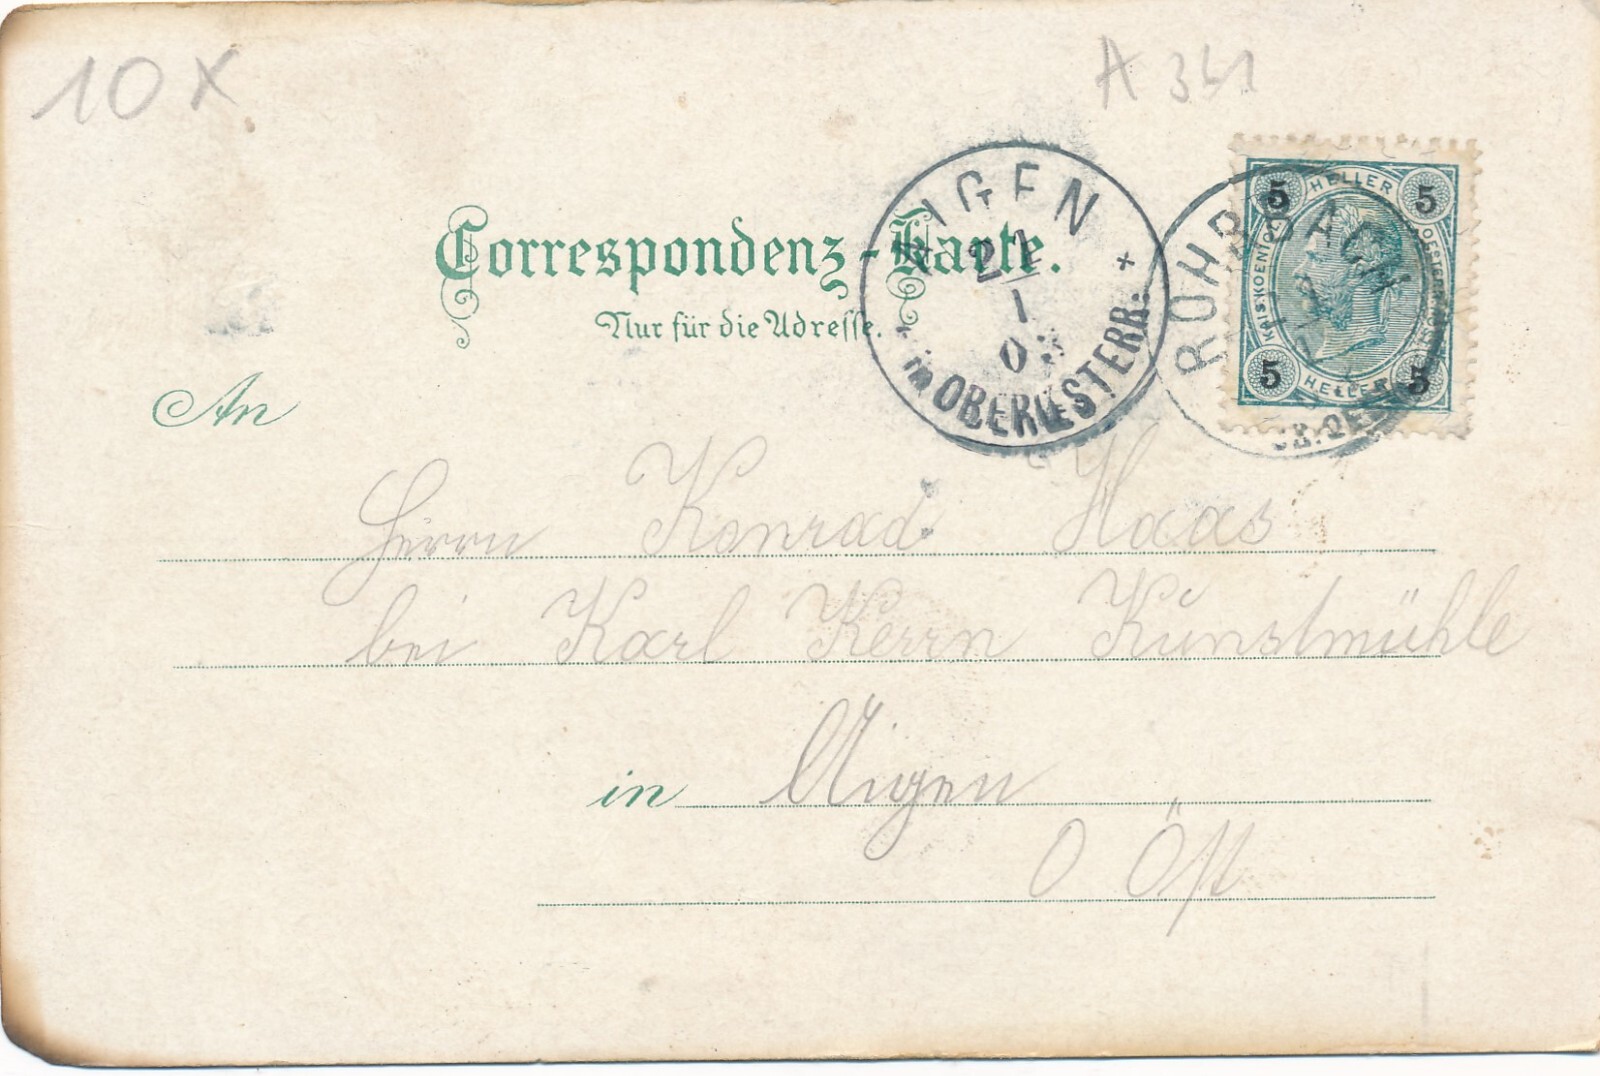 10 X
A 341
Correspondenz-Karte.
Nur für die Adresse.
AIGEN
21
1
03
in OBEROESTERR:
ROHRBACH
5 HELLER 5
5 HELLER 5
An
Herrn Konrad Haas
bei Karl Kerrn Kunstmühle
in Aigen
O Öst